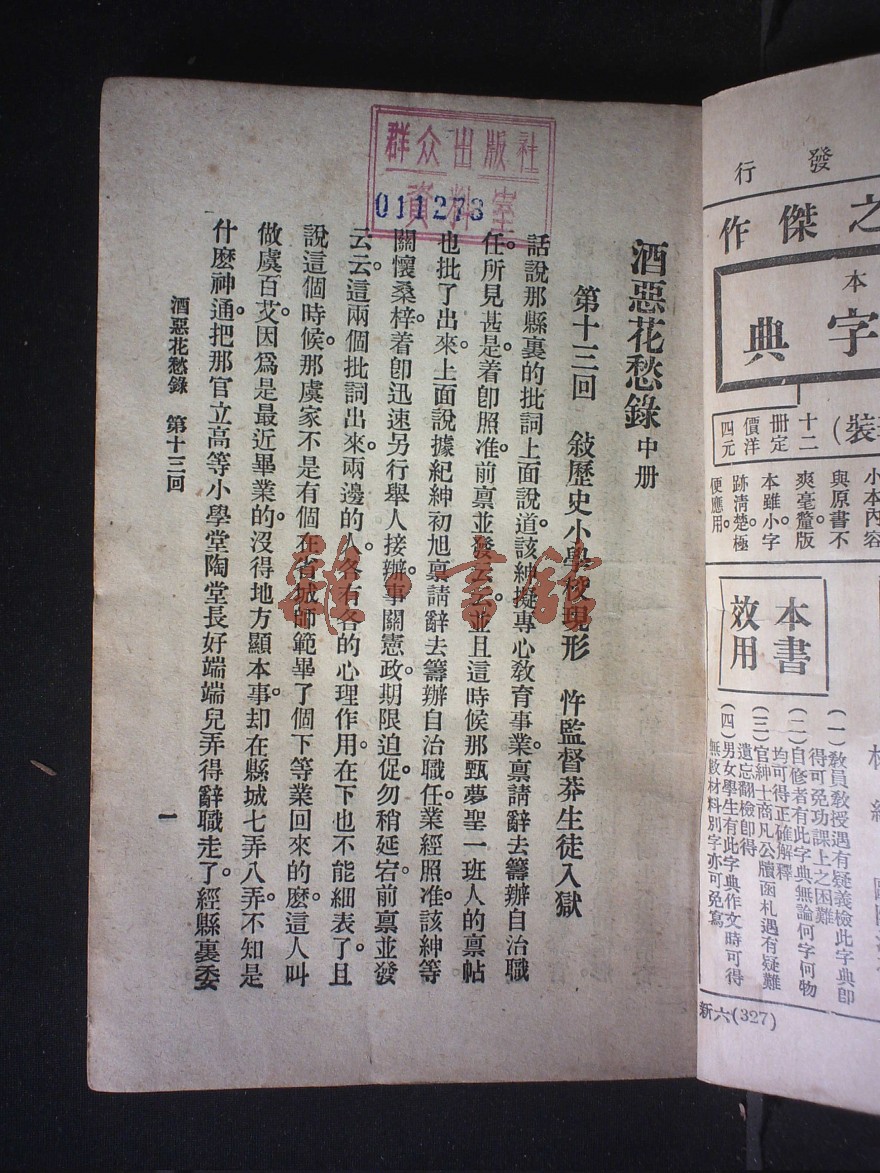 群众出版社
資料室
011273
酒惡花愁錄 中册
第十三回 敍歷史小學校現形 忤監督莽生徒入獄
話說那縣裏的批詞上面說道。該紳擬專心敎育事業。禀請辭去籌辦自治職
任。所見甚是。着卽照准。前禀並發云云。並且這時候那甄夢聖一班人的禀帖
也批了出來。上面說據紀紳初旭禀請辭去籌辦自治職任。業經照准。該紳等
關懷桑梓。着卽迅速另行舉人接辦。事關憲政。期限迫促。勿稍延宕。前禀並發
云云。這兩個批詞出來。兩邊的人。各有各的心理作用。在下也不能細表了。且
說這個時候。那虞家不是有個在省城師範畢了個下等業回來的麽。這人叫
做虞百艾。因爲是最近畢業的。沒得地方顯本事。却在縣城七弄八弄。不知是
什麽神通。把那官立高等小學堂陶堂長好端端兒弄得辭職走了。經縣裏委
酒惡花愁錄 第十三回
一
雜·書館
發行
之傑作
本
字典
裝)
十二册定價洋四元
小本內容
與原書不
爽毫釐版
本雖小字
跡清楚極
便應用。
本書效用
(一)敎員敎授遇有疑義檢此字典卽
得可免功課上之困難
(二)自修者有此字典無論何字何物
均可得正確解釋
(三)官紳士商凡公牘函札遇有疑難
遺忘翻檢卽得
(四)男女學生有此字典作文時可得
無數材料別字亦可免寫
新六(327)